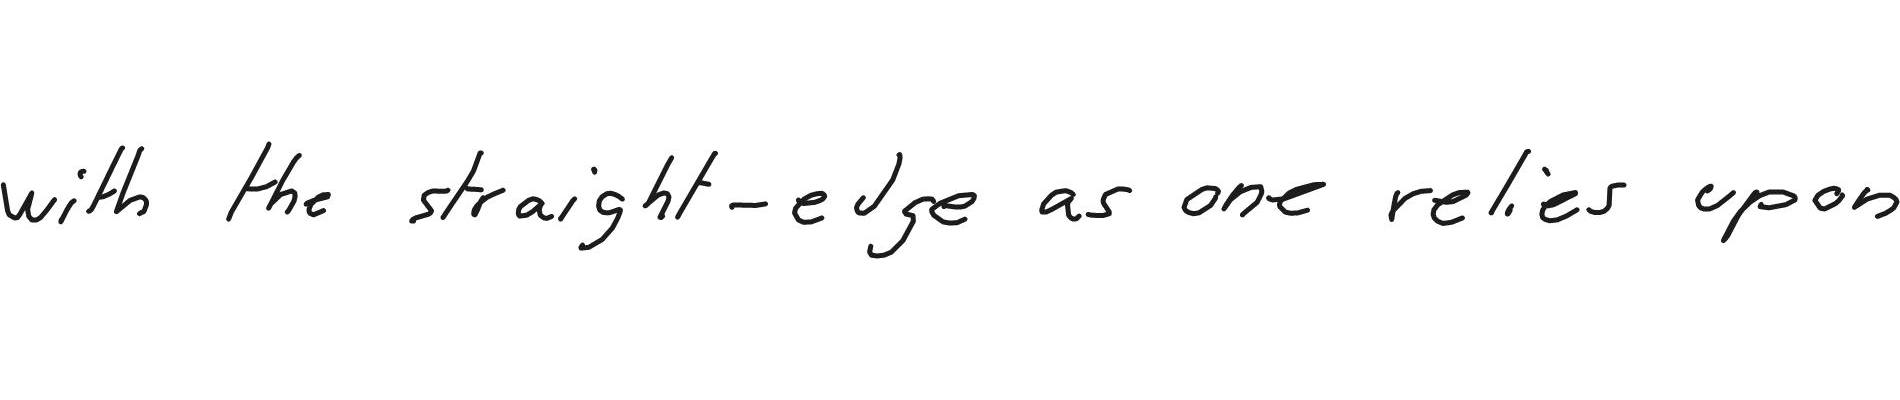 with the straight-edge as one relies upon